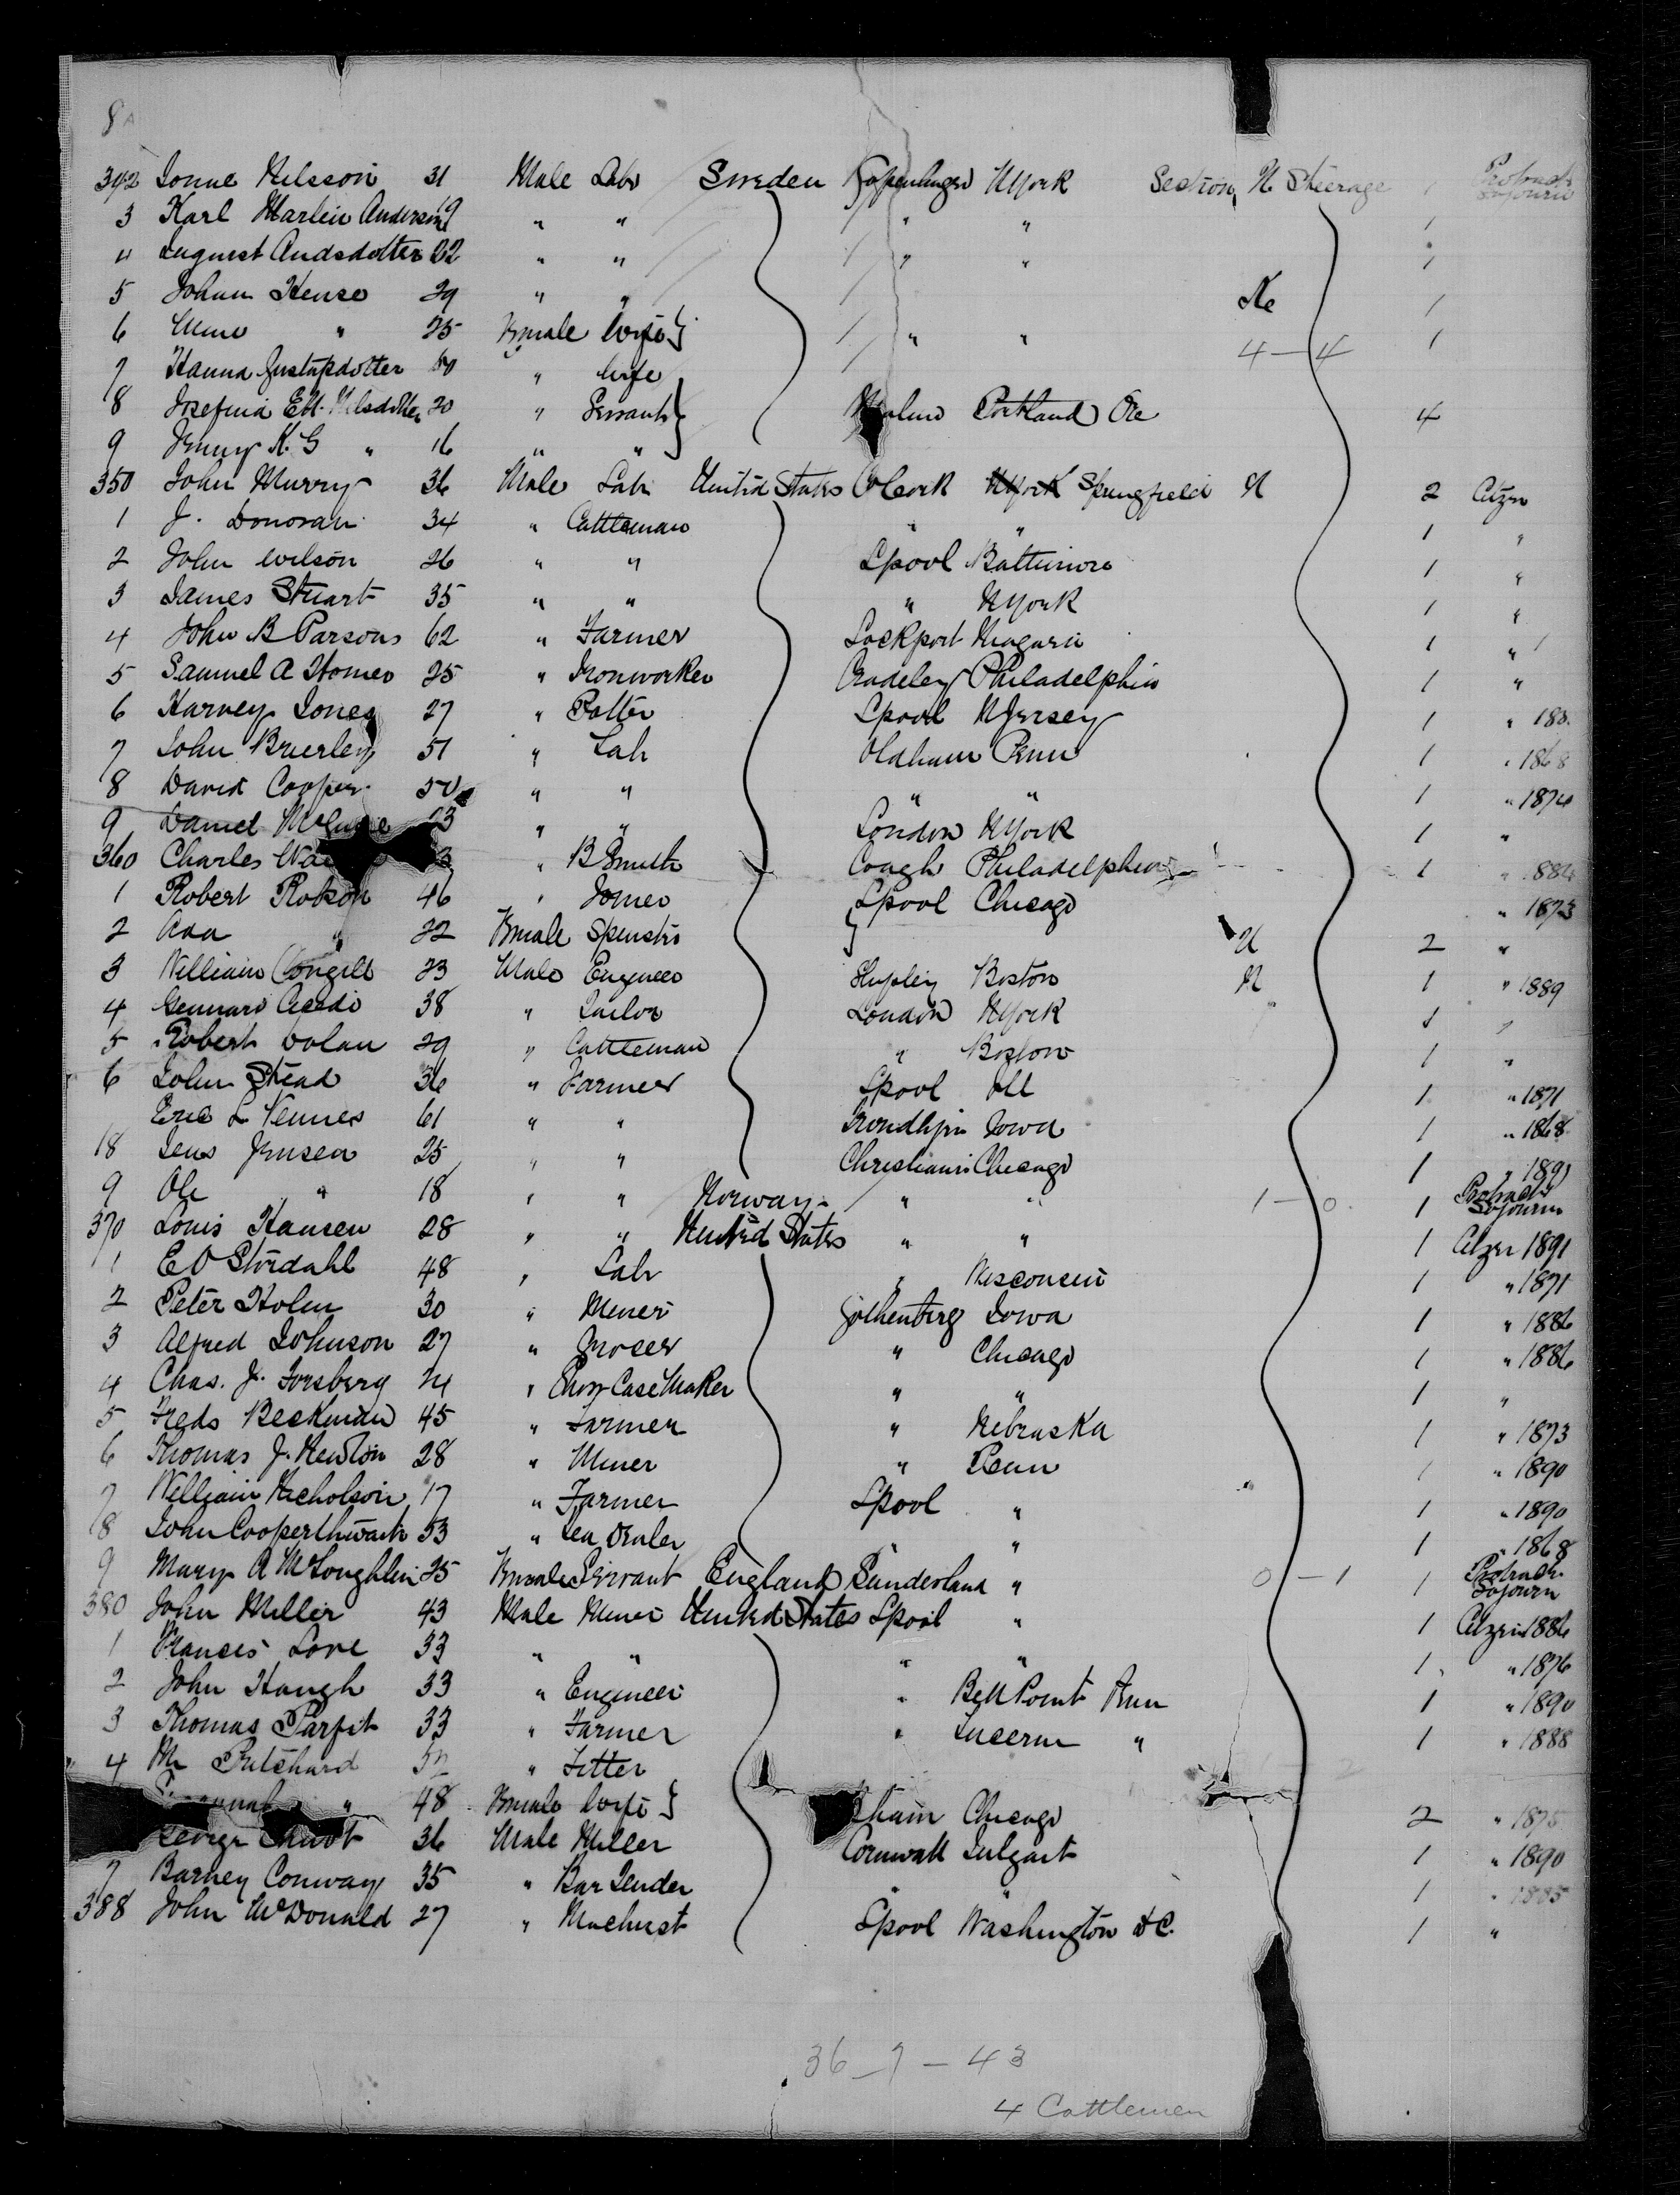 8A
342 Nilsson 31 Male Labr Sweden Copenhagen NYork Section N Steerage 1 Protracted Sojourn
3 Karl Martin Anderson 19 " " " " 1
4 August Andsdotter 22 " " " " 1
5 Johan 29 " " Ne 1
6 " 25 Female Wife } " " 1
7 Hanna Gustafsdotter " Wife 4—4
8 Josefina Nilsdotter 20 " Servants } Malmo Portland Ore 4
9 Jenny K. G " 16 " "
350 John Murry 36 Male Labr United States NYork Springfield N 2 Citzn
1 J. Donovan 34 " Cattleman " " 1 "
2 John Wilson 26 " " Lpool Baltimore 1 "
3 James Stuart 35 " " " NYork 1 "
4 John B Parsons 62 " Farmer Lockport Niagara 1 "
5 Samuel A Homer 25 " Ironworker Cradeley Philadelphia 1 "
6 Harvey Jones 27 " Potter Lpool NJersey 1 " 188
7 John Brierley 51 " Labr Oldham Penn 1 " 1868
8 David Cooper 50 " " " " 1 " 1874
9 Daniel 23 " " London NYork 1 "
360 Charles " B Smith Philadelphia 1 " 1884
1 Robert Robson 46 " Joiner } Lpool Chicago " 1873
2 Ada " 22 Female Spinster N 2 "
3 William Congill 23 Male Engineer Shipley Boston N 1 " 1889
4 Gennaro 38 " Tailor London NYork 1 "
5 Robert Dolan 29 " Cattleman " Boston 1 "
6 John Stead 36 " Farmer Lpool Ill 1 " 1871
Eric L Vennes 61 " " Trondhjin Iowa 1 " 1868
18 Jens Jensen 25 " " Christiania Chicago 1 " 1891
9 Ole " 18 " " Norway " " 1—0 1 Protractd Sojourn
370 Louis Hansen 28 " " United States " " 1 Citzn 1891
1 E O Stordahl 48 " Labr " Wisconsin 1 " 1871
2 Peter Holm 30 " Miner Gothenberg Iowa 1 " 1886
3 Alfred Johnson 27 " Grocer " Chicago 1 " 1886
4 Chas. J. Forsberg 24 " Case Maker " " 1 "
5 Beckman 45 " Farmer " Nebraska 1 " 1873
6 Thomas J. Newton 28 " Miner " Penn 1 " 1890
7 William Nicholson 17 " Farmer Lpool " 1 " 1890
8 John Cooperthwait 53 " Tea Dealer " 1 " 1868
9 Mary A McLoughlin 25 Female Servant England Sunderland " 0—1 1 Protractd Sojourn
380 John Miller 43 Male Miner United States Lpool " 1 Citzn 1886
1 Frances Love 33 " " " " 1 " 1876
2 John Haugh 33 " Engineer " Bell Point Penn 1 " 1890
3 Thomas Parfit 33 " Farmer " Lucerne " 1 " 1888
4 Wm Pritchard " Fitter
" 48 Female Wife } Chicago 2 " 1875
George 36 Male Miller Cornwall 1 " 1890
7 Barney Conway 35 " Bar Tender " " 1 " 1885
388 John McDonald 27 " Machinist Lpool Washington D.C. 1 "
36—7—43
4 Cattlemen